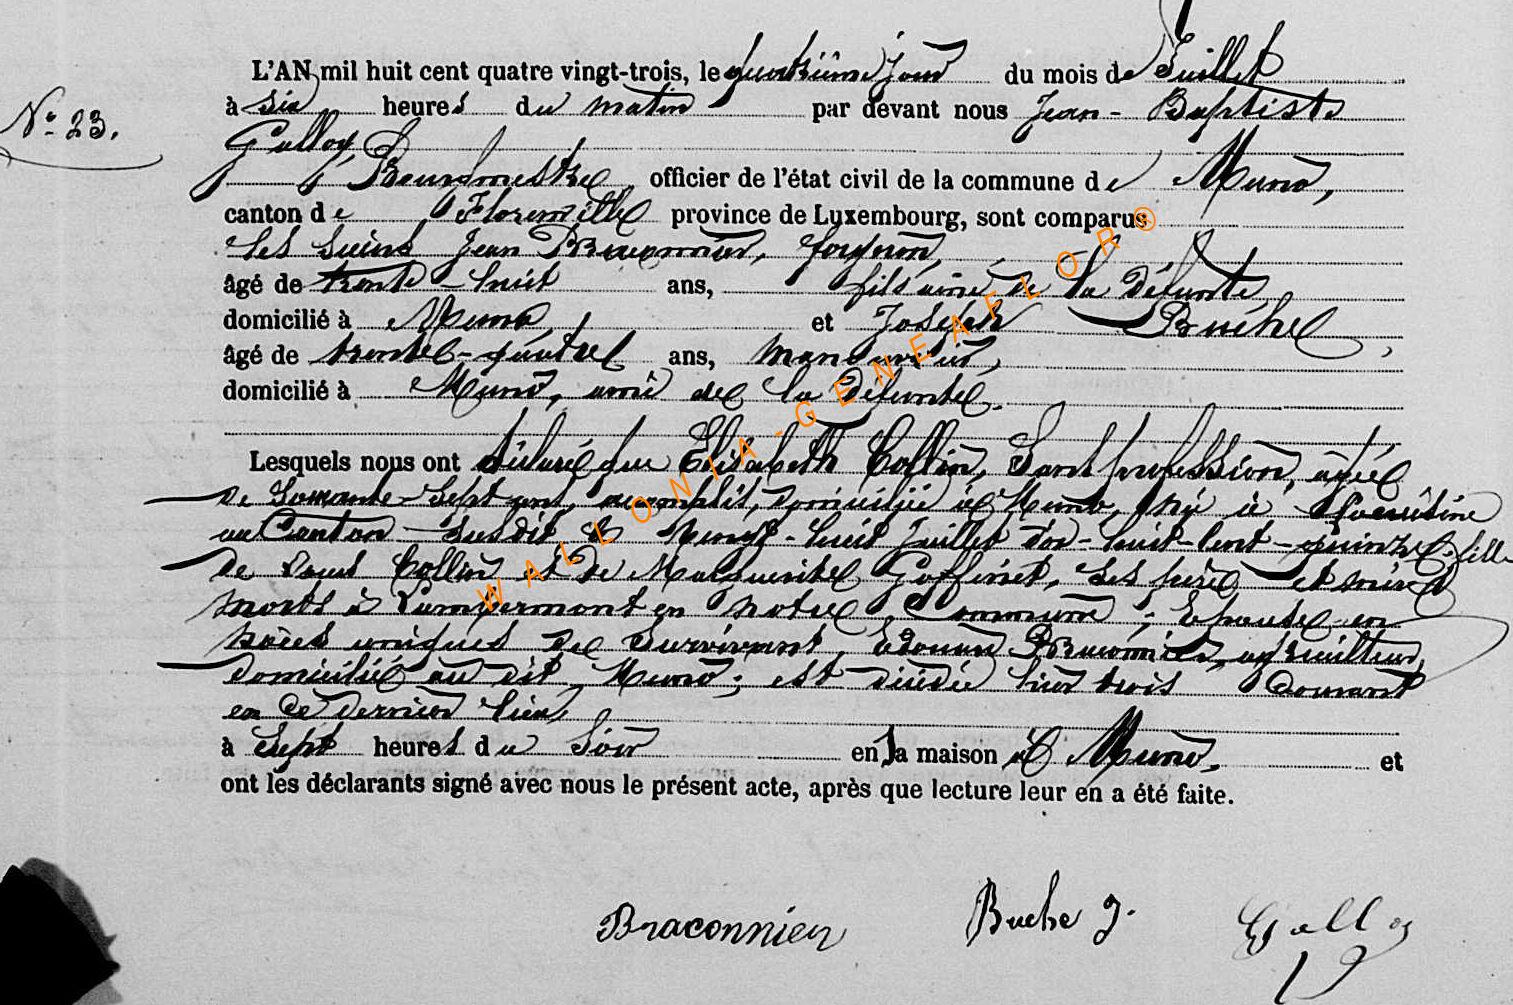 L'AN mil huit cent quatre vingt-trois, le quatrième jour du mois de Juillet
à six heures du matin par devant nous Jean-Baptiste
N° 23.
Galloy,
Bourgmestre officier de l'état civil de la commune de Muno,
canton de Florenville province de Luxembourg, sont comparus
les sieurs Jean Braconnier, forgeron,
âgé de trente-huit ans, fils ainé de la défunte
domicilié à Muno, et Joseph Buché
âgé de trente-quatre ans, manouvrier,
domicilié à Muno, ami de la défunte.
Lesquels nous ont déclaré que Elisabeth Collin, Sans profession, agée
de soixante-sept ans, accomplis, domiciliée à Muno, née à
au Canton susdit le Vingt-huit Juillet dix-huit-cent-quinze, fille
de Collin et de Marguerite Goffinet, ses père et mère
morts à Lambermont en notre Commune; Epouse en
noces uniques de survivant, Edouard Braconnier, agriculteur,
domicilié au dit Muno; est décédée hier trois Courant
en ce dernier lieu,
à sept heures du soir en sa maison à Muno, et
ont les déclarants signé avec nous le présent acte, après que lecture leur en a été faite.
WALLONIA-GENEAFLOR®
Braconnier Buche J. Galloy